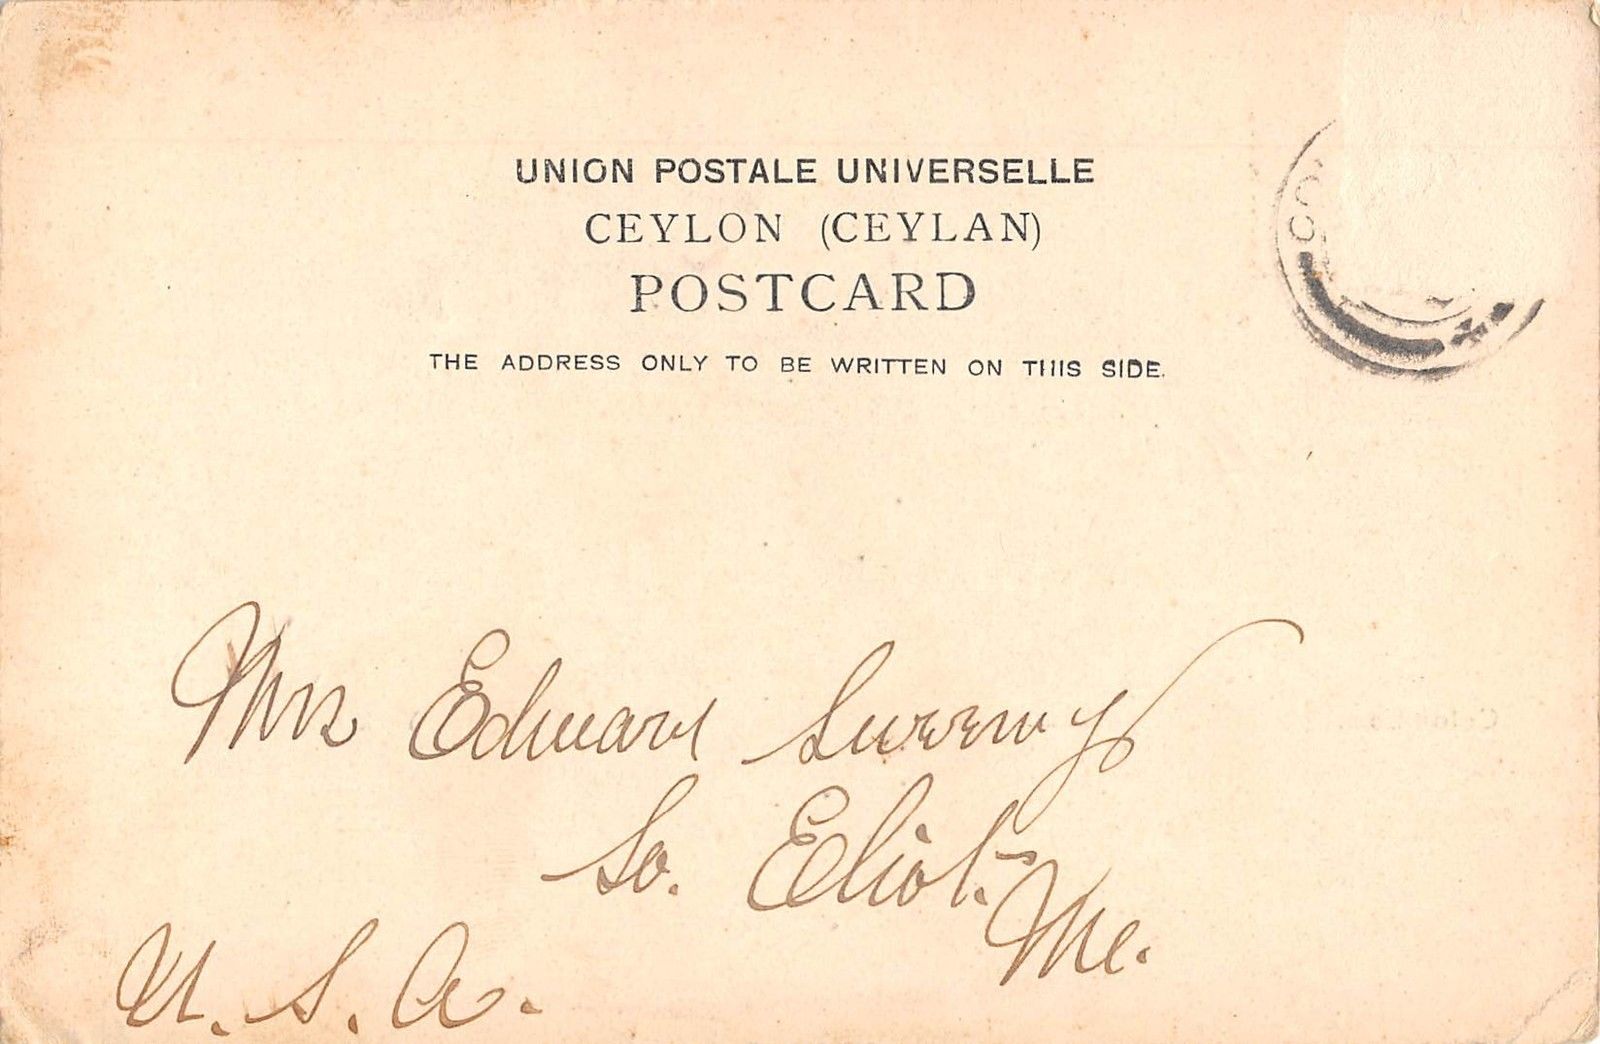 UNION POSTALE UNIVERSELLE
CEYLON (CEYLAN)
POSTCARD
THE ADDRESS ONLY TO BE WRITTEN ON THIS SIDE.
Mrs Edward Sweeny
So. Eliot.
Me.
U. S. A.